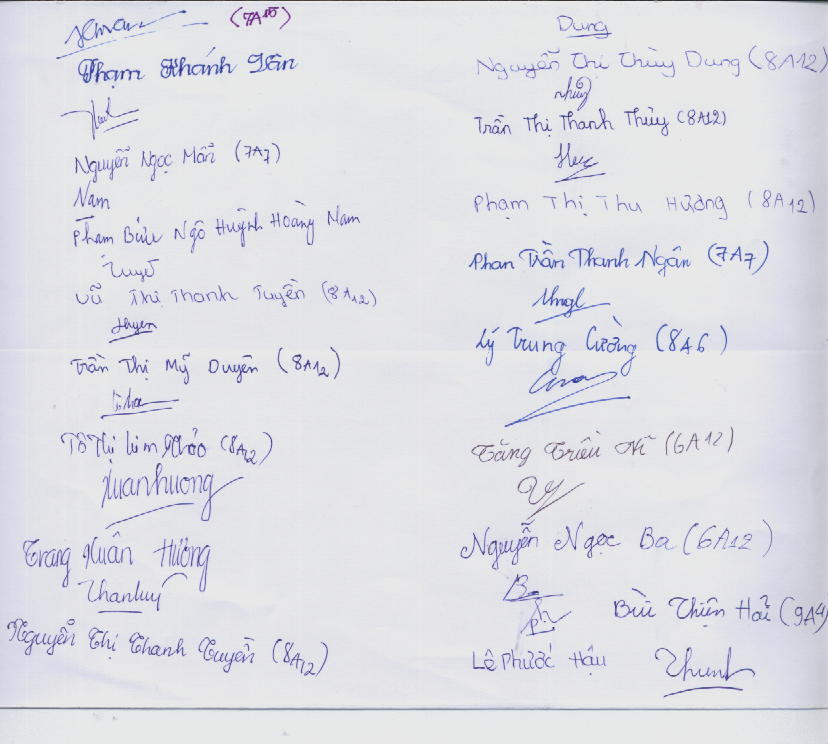 (7A15)
Phạm Khánh Vân
Nguyễn Ngọc Mẫn (7A7)
Nam
Phạm Bửu Ngô Huỳnh Hoàng Nam
Tuyền
Vũ Thị Thanh Tuyền (8A12)
Duyen
Trần Thị Mỹ Duyên (8A12)
Tô Thị Kim Thảo (8A12)
Xuanhuong
Trang Xuân Hương
Nguyễn Thị Thanh Tuyền (8A12)
Dung
Nguyễn Thị Thùy Dung (8A12)
Trần Thị Thanh Thủy (8A12)
Phạm Thị Thu Hương (8A12)
Phan Trần Thanh Ngân (7A7)
Lý Trung Cường (8A6)
Tăng Triều Vĩ (6A12)
Nguyễn Ngọc Ba (6A12)
Ba
Bùi Thiện Hải (9A4)
Lê Phước Hậu